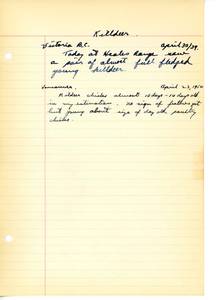 Killdeer
Victoria B.C. April 30/39.
Today at Heales Range saw
a pair of almost full fledged
young killdeer
Vancouver. April 23, 1940
Killdeer chicks almost 10 days - 14 days old
in my estimation. no sign of feathers yet
but young about size of day old poultry
chicks.